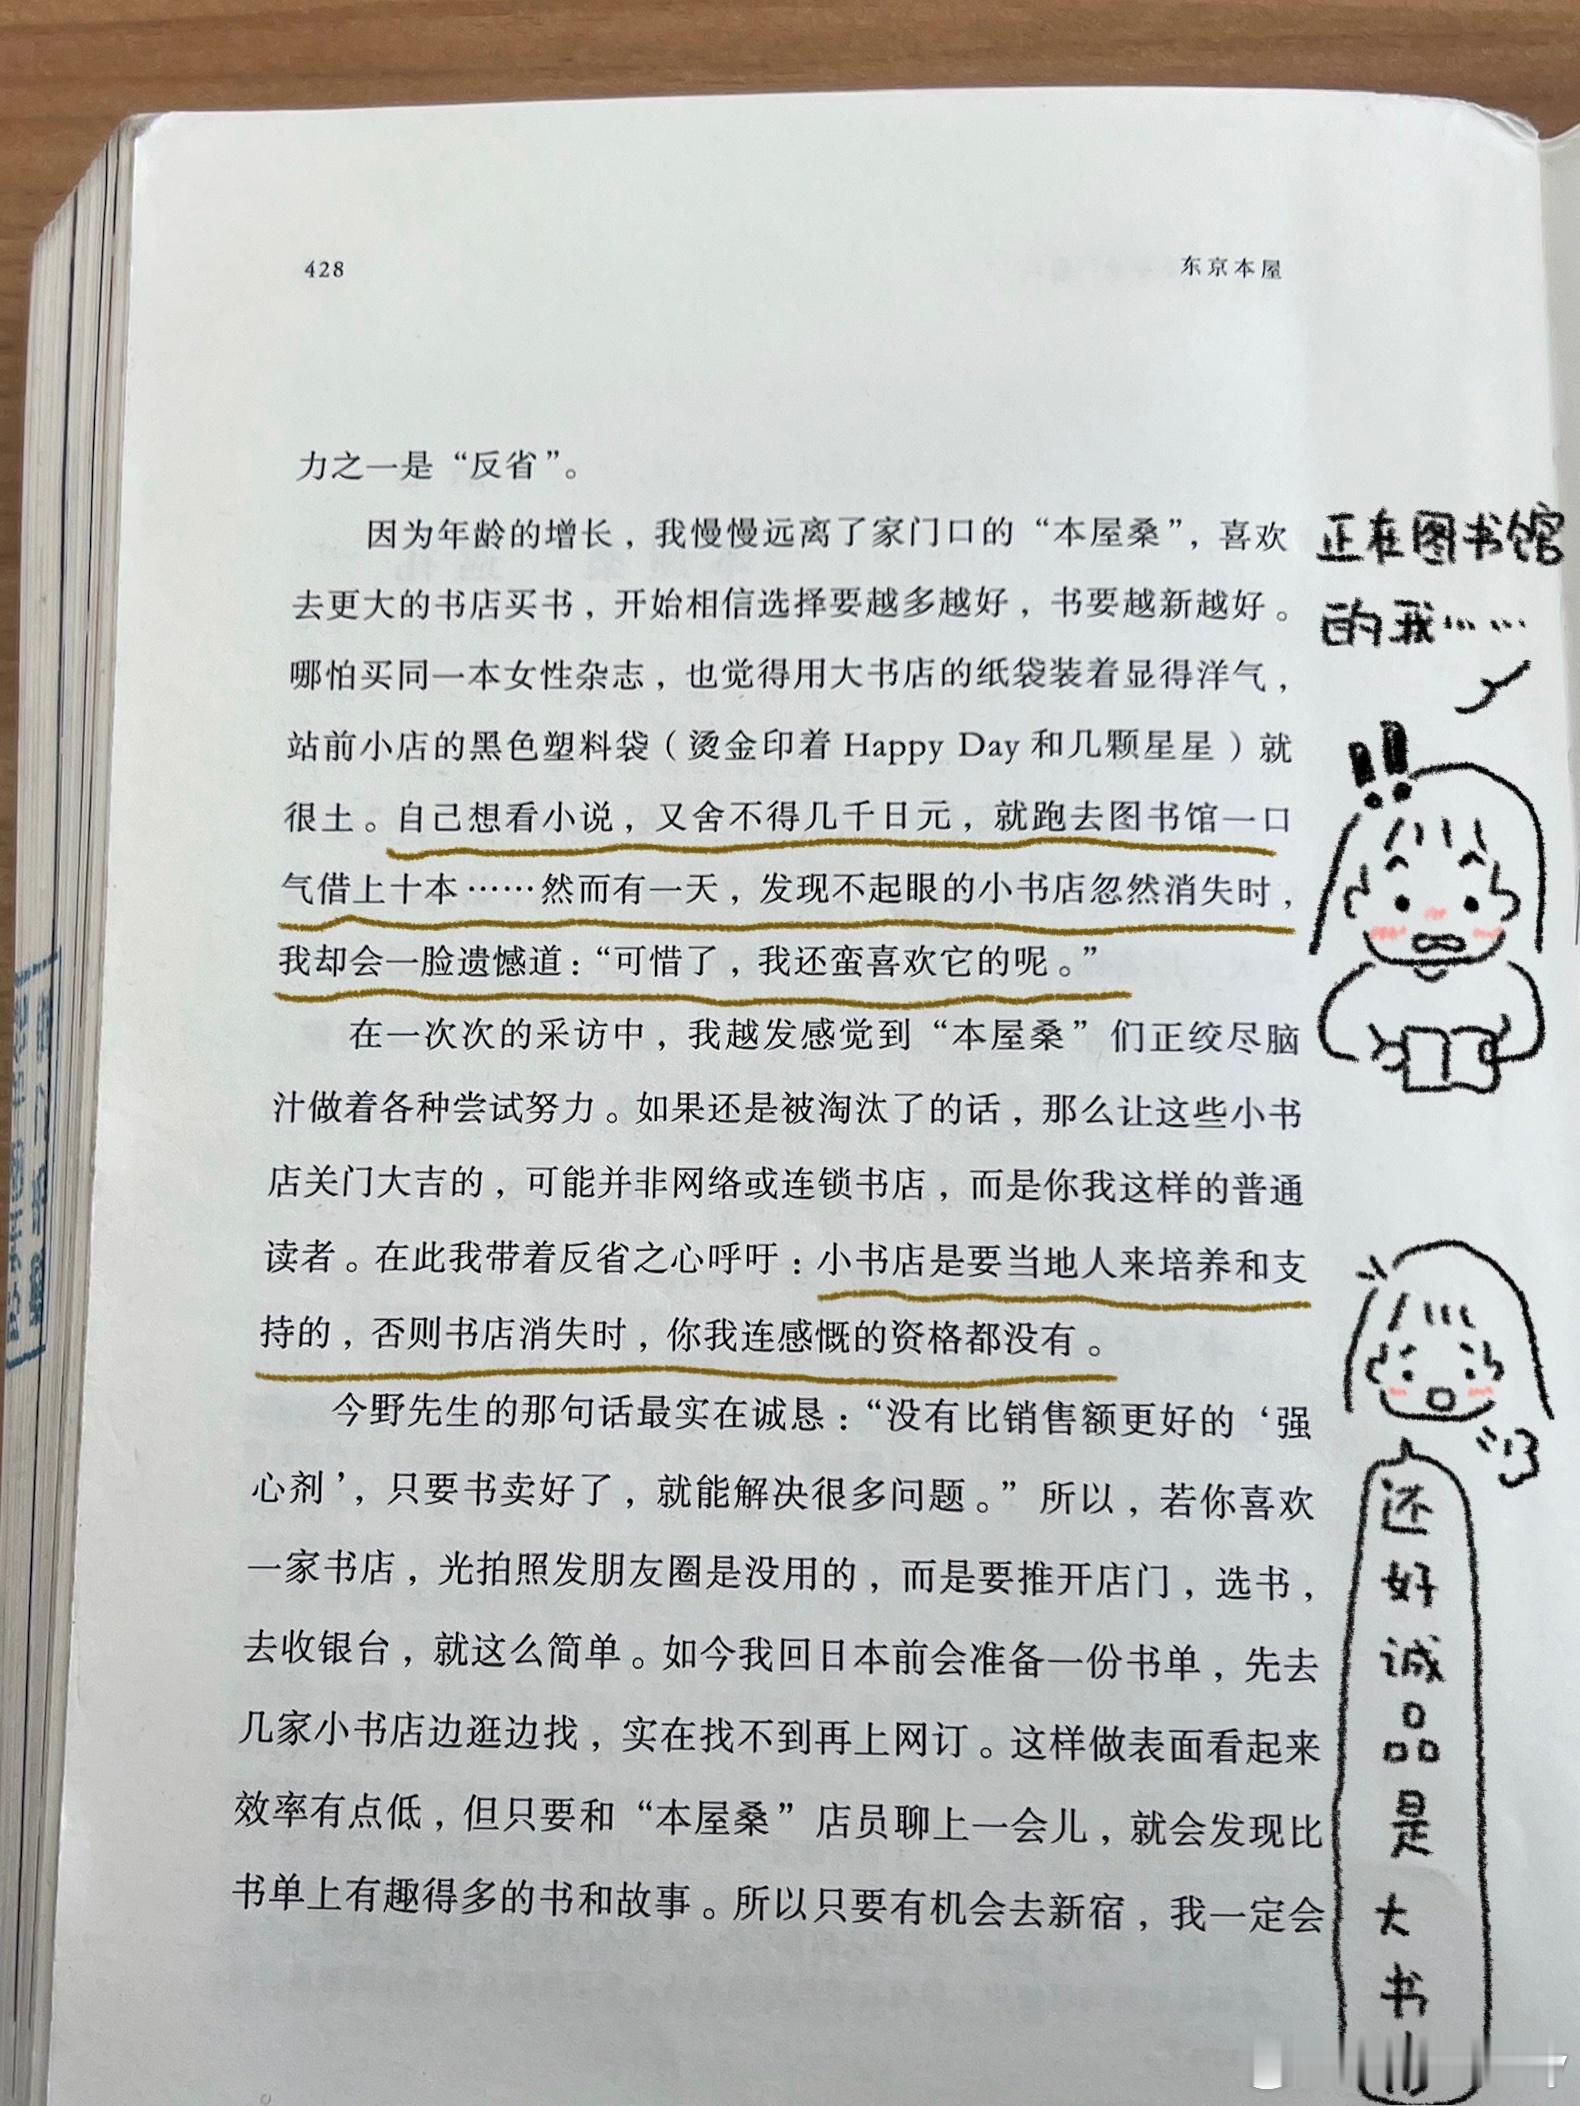 428
东京本屋
力之一是“反省”。
因为年龄的增长，我慢慢远离了家门口的“本屋桑”，喜欢
去更大的书店买书，开始相信选择要越多越好，书要越新越好。
哪怕买同一本女性杂志，也觉得用大书店的纸袋装着显得洋气，
站前小店的黑色塑料袋（烫金印着 Happy Day 和几颗星星）就
很土。自己想看小说，又舍不得几千日元，就跑去图书馆一口
气借上十本……然而有一天，发现不起眼的小书店忽然消失时，
我却会一脸遗憾道：“可惜了，我还蛮喜欢它的呢。”
在一次次的采访中，我越发感觉到“本屋桑”们正绞尽脑
汁做着各种尝试努力。如果还是被淘汰了的话，那么让这些小书
店关门大吉的，可能并非网络或连锁书店，而是你我这样的普通
读者。在此我带着反省之心呼吁：小书店是要当地人来培养和支
持的，否则书店消失时，你我连感慨的资格都没有。
今野先生的那句话最实在诚恳：“没有比销售额更好的‘强
心剂’，只要书卖好了，就能解决很多问题。”所以，若你喜欢
一家书店，光拍照发朋友圈是没用的，而是要推开店门，选书，
去收银台，就这么简单。如今我回日本前会准备一份书单，先去
几家小书店边逛边找，实在找不到再上网订。这样做表面看起来
效率有点低，但只要和“本屋桑”店员聊上一会儿，就会发现比
书单上有趣得多的书和故事。所以只要有机会去新宿，我一定会
正在图书馆
的我……
!!
还
好
诚
品
是
大
书